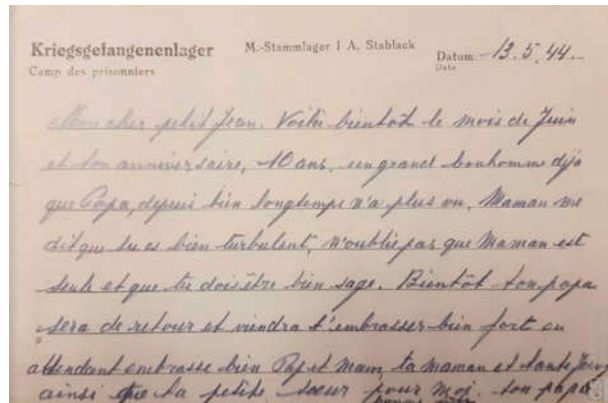 Kriegsgefangenenlager
Camp des prisonniers
M.-Stammlager I A, Stablack
Datum 13.5.44
Date
Mon cher petit Jean. Voilà bientôt le mois de Juin
et ton anniversaire, 10 ans, un grand bonhomme déjà
que Papa, depuis bien longtemps n'a plus vu. Maman me
dit que tu es bien turbulent, n'oublie pas que Maman est
seule et que tu dois être bien sage. Bientôt ton papa
sera de retour et viendra t'embrasser bien fort en
attendant embrasse bien Pap et Mam, ta maman et tante
ainsi que ta petite sœur pour moi. ton papa